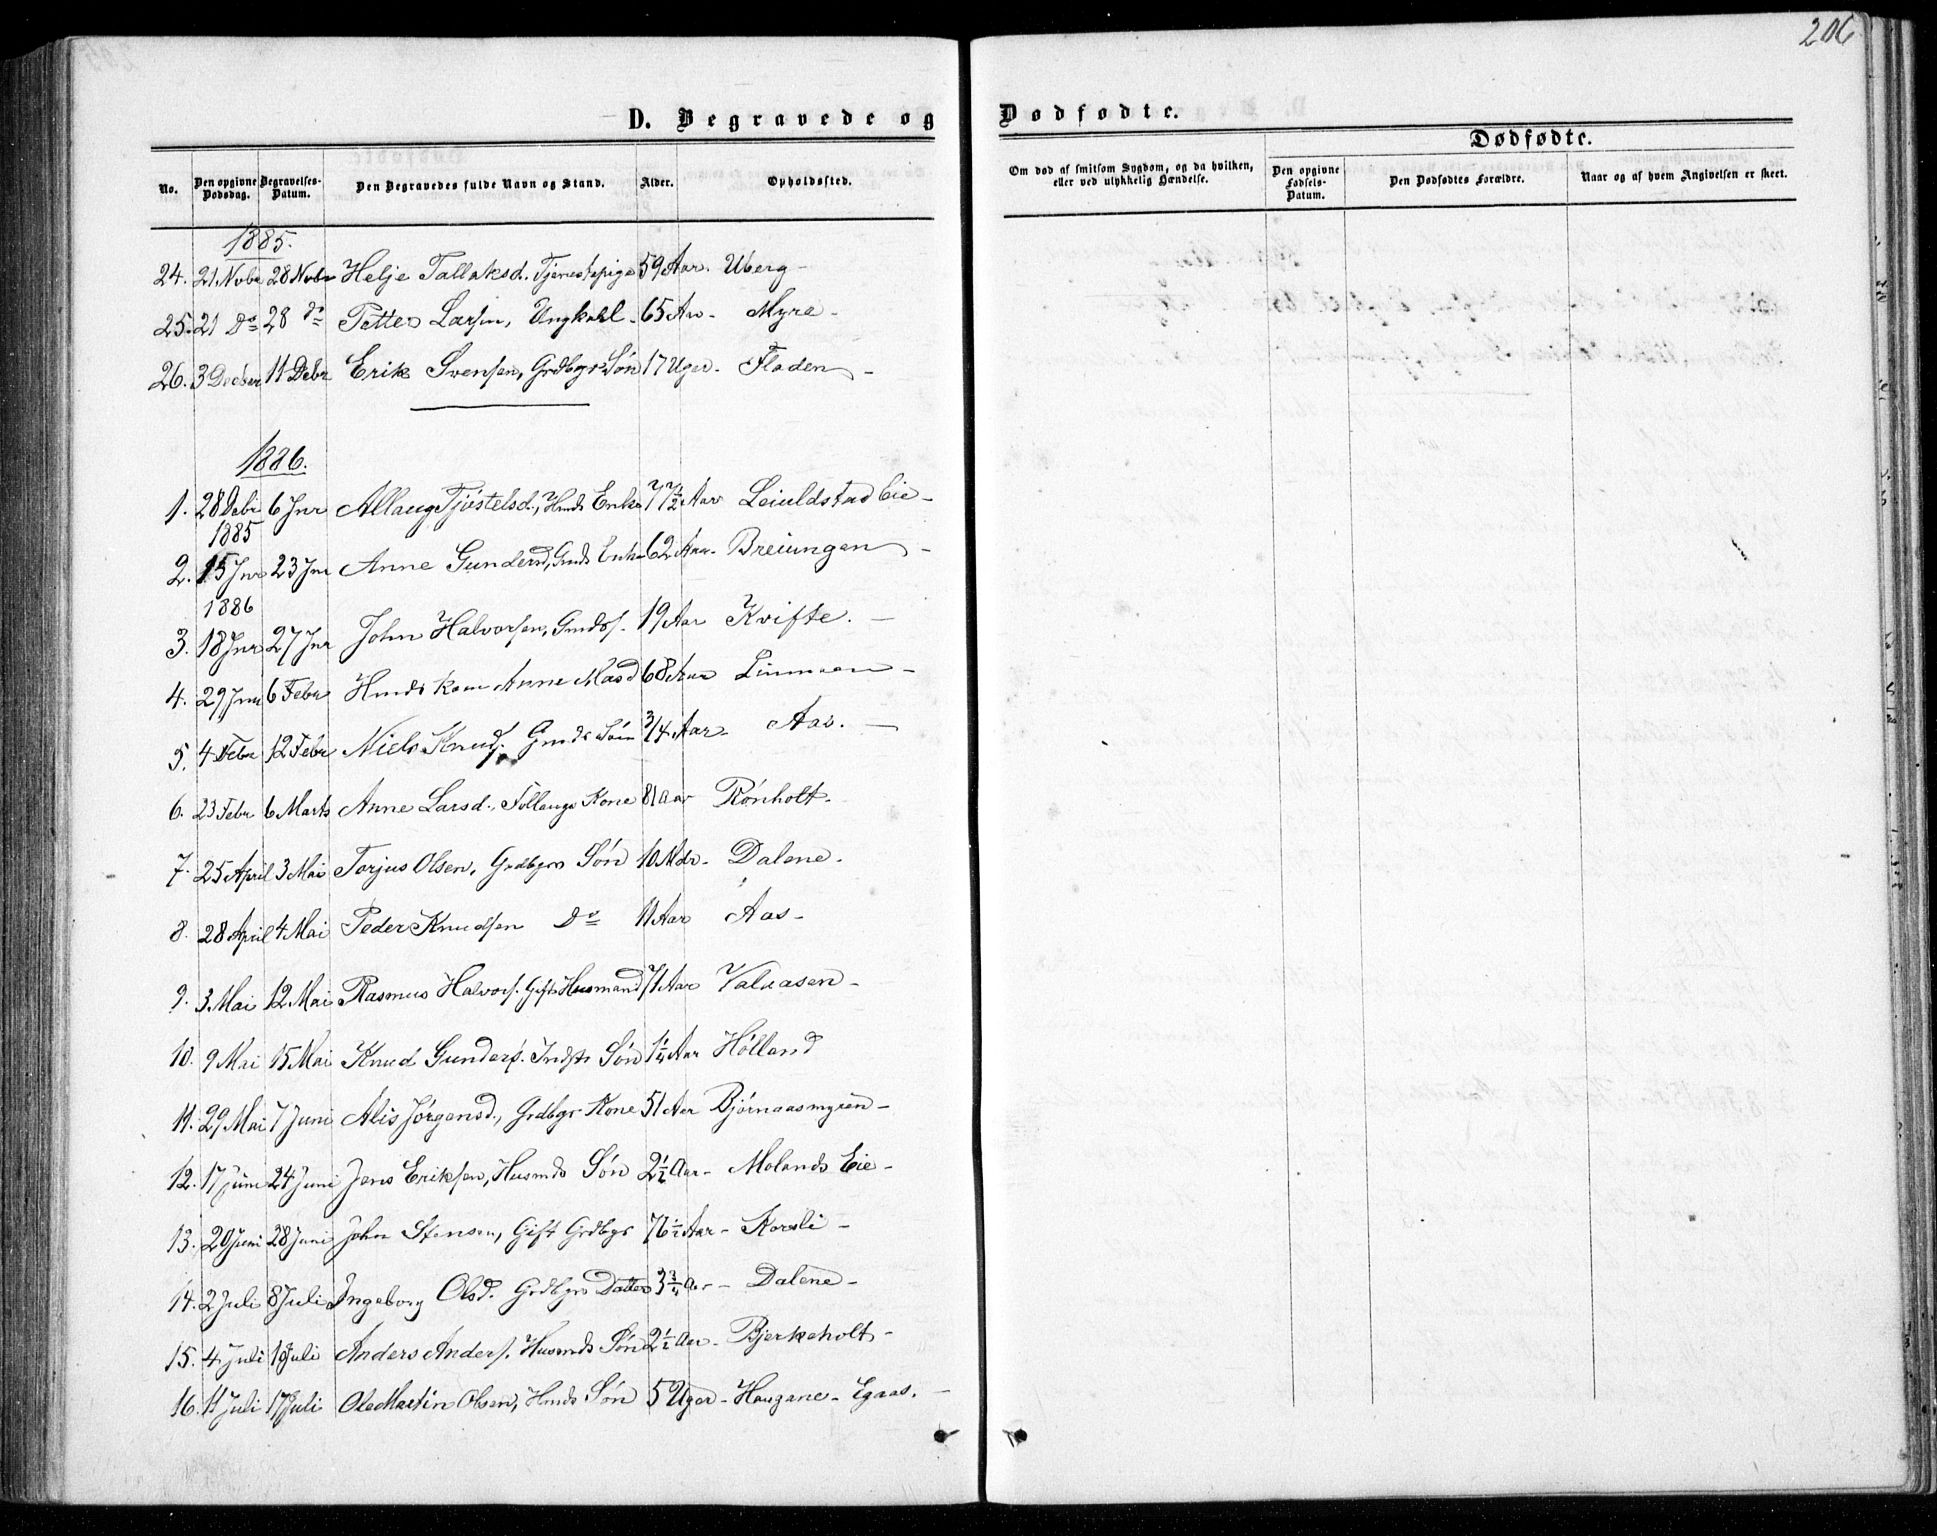 206
D. Begravede og Dødfødte.
Dødfødte.
No.
Den opgivne Dødsdag.
Begravelses-Datum.
Den Begravedes fulde Navn og Stand.
Alder.
Opholdssted.
Om død af smitsom Sygdom, og da hvilken, eller ved ulykkelig Hændelse.
Den opgivne Fødsels-Datum.
Den Dødfødtes Forældre.
Naar og af hvem Angivelsen er skeet.
1885.
24. 21 Nvbr 28 Nvbr Helje Tallaksd. Tjenestepige 59 Aar. Uberg -
25. 21 Do 28 do Petter Larsen, Ungkarl - 65 Aar - Myra -
26. 3 Decber 11 Debr Erik Svensen, Grdbgrs Søn 17 Uger - Floden -
1886.
1. 28 Debr 6 Jnr Allaug Tjøstelsd., Hmds Enke 77 1/2 Aar Leiuldstad Eie -
1885
2. 15 Jnr 23 Jnr Anne Gundersd, Gmds Enke 62 Aar - Breiungen -
1886
3. 18 Jnr 27 Jnr John Halvorsen, Gmdss. 19 Aar Kvifte. -
4. 29 Jnr 6 Febr Hmds Kone Anne Masd 68 Aar Linmoen -
5. 4 Febr 12 Febr Niels Knuds. Gmds Søn 3/4 Aar - Aas. -
6. 23 Febr 6 Marts Anne Larsd., Føllaugs Kone 81 Aar Rønholt -
7. 25 April 3 Mai Torjus Olsen, Grdbgrs Søn 10 Mdr - Dalene -
8. 28 April 4 Mai Peder Knudsen Do 11 Aar Aas -
9. 3 Mai 12 Mai Rasmus Halvors. Gift Husmand 71 Aar Valaasen -
10. 9 Mai 15 Mai Knud Gunders. Indsts Søn 1 1/4 Aar Hølland
11. 29 Mai 7 Juni Alis Jørgensd., Grdbgr Kone 51 Aar Bjørnaasmyren -
12. 17 Juni 24 Juni Jens Eriksen, Husmds Søn 2 1/2 Aar - Molands Eie -
13. 20 Juni 28 Juni John Stensen, Gift Grdbgr 76 1/2 Aar - Korsli -
14. 2 Juli 8 Juli Ingeborg Olsd. Grdbgrs Datter 3 3/4 Aar - Dalene -
15. 4 Juli 10 Juli Anders Anders. Husmds Søn 2 1/2 Aar - Bjerkeholt -
16. 11 Juli 17 Juli Ole Martin Olsen, Hmds Søn 5 Uger - Haugane - Egaas. -